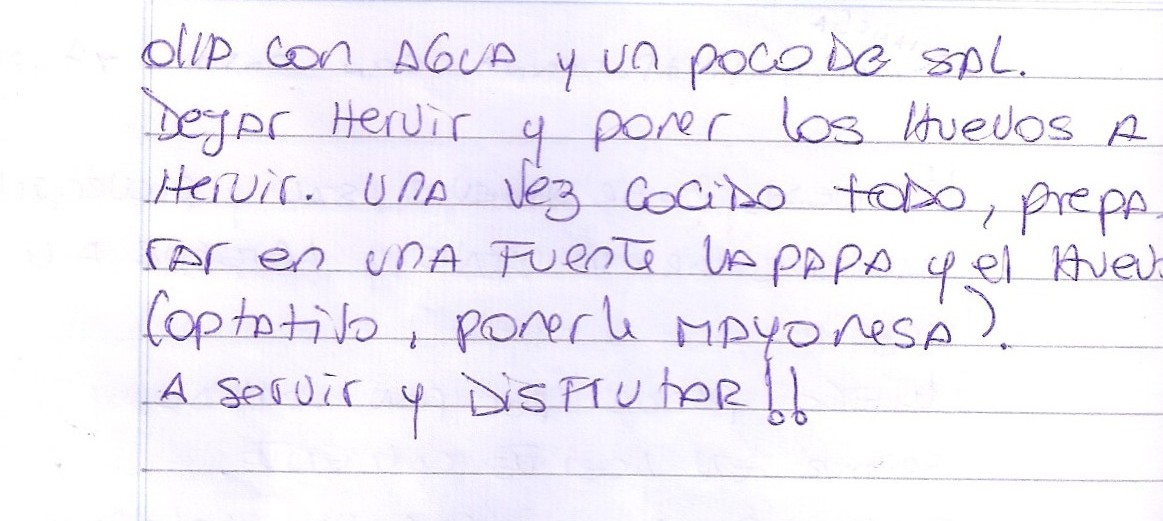 olla con AGUA y un poco DE SAL.
Dejar Hervir y poner los Huevos A
Hervir. UNA vez cocido todo, prepa
rar en una Fuente la papa y el Huevo
(optativo, ponerle MAYonesa).
A servir y DISFRUTAR!!